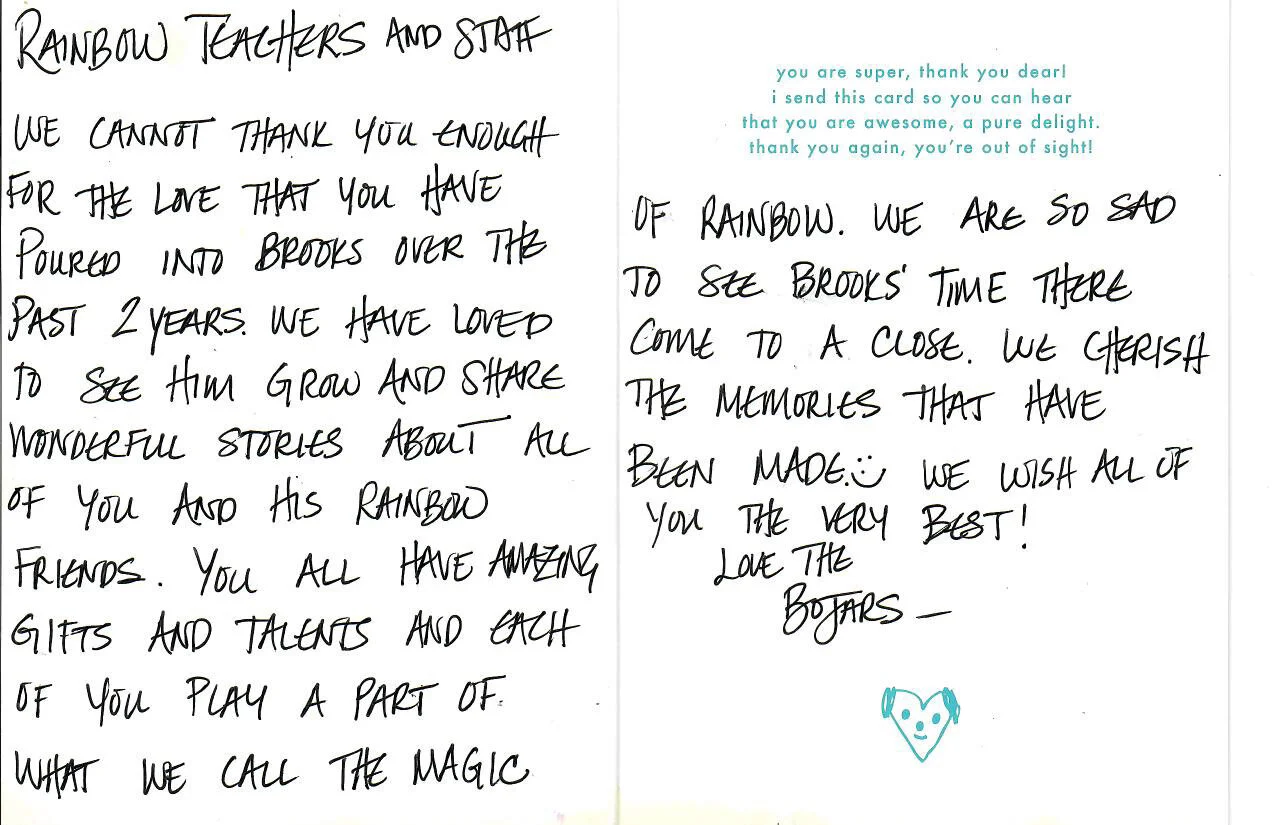 RAINBOW TEACHERS AND STAFF
WE CANNOT THANK YOU ENOUGH
FOR THE LOVE THAT YOU HAVE
POURED INTO BROOKS OVER THE
PAST 2 YEARS. WE HAVE LOVED
TO SEE HIM GROW AND SHARE
WONDERFUL STORIES ABOUT ALL
OF YOU AND HIS RAINBOW
FRIENDS. YOU ALL HAVE AMAZING
GIFTS AND TALENTS AND EACH
OF YOU PLAY A PART OF
WHAT WE CALL THE MAGIC
you are super, thank you dear!
i send this card so you can hear
that you are awesome, a pure delight.
thank you again, you're out of sight!
OF RAINBOW. WE ARE SO SAD
TO SEE BROOKS' TIME THERE
COME TO A CLOSE. WE CHERISH
THE MEMORIES THAT HAVE
BEEN MADE. WE WISH ALL OF
YOU THE VERY BEST!
LOVE THE
BOJARS —